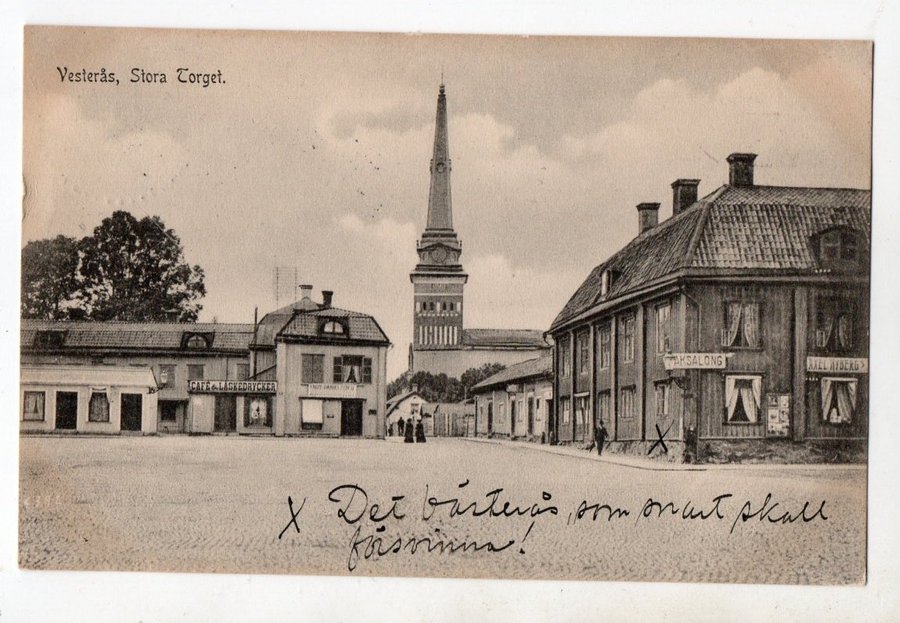 Vesterås, Stora Torget.
CAFÉ & LÄSKEDRYCKER
RAKSALONG
AXEL RYBERG
X Det Västerås, som snart skall
försvinna!
X